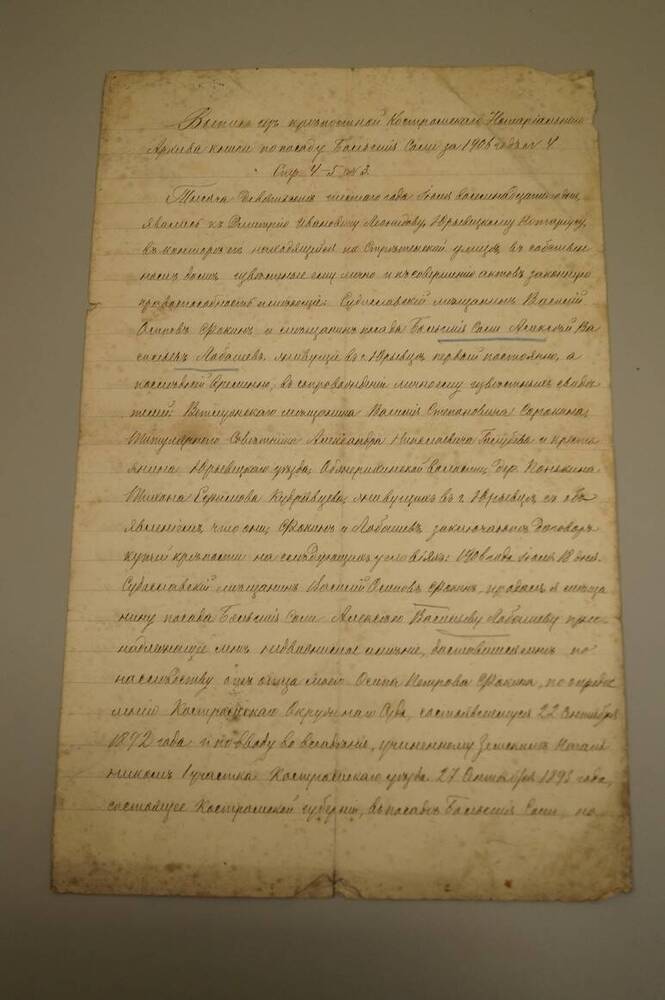 Выпись изъ крѣпостной Костромского Нотаріальнаго
Архива книги по посаду Большія Соли за 1906 годъ № 4
Стр. 4-5 № 3.
Тысяча девятьсотъ шестого года Іюля восемнадцатаго дня,
явились къ Димитрію Ивановичу Леонидову, Юрьевецкому Нотаріусу,
въ контору его находящуюся на Стрѣтенской улицѣ, въ собствен
номъ домѣ, извѣстные ему лично и къ совершенію актовъ законную
правоспособность имѣющіе: Судиславскій мѣщанинъ Василій
Осиповъ Фокинъ и мѣщанинъ посада Большія Соли Алексѣй Ва
сильевъ Лобашевъ, живущіе въ г. Юрьевцѣ первый постоянно, а
послѣдній временно, въ сопровожденіи лично ему извѣстныхъ свидѣ
телей: мѣщанина Василія Степановича Сорокина,
Титулярнаго Совѣтника Александра Николаевича Голубева и кресть
янина Юрьевецкаго уѣзда, волости, дер.
Тихона Кудрявцева, живущихъ въ г. Юрьевцѣ, съ объ
явленіемъ, что они, Фокинъ и Лобашевъ, заключаютъ договоръ
купчей крѣпости на слѣдующихъ условіяхъ: 1906 года Іюля 18 дня.
Судиславскій мѣщанинъ Василій Осиповъ Фокинъ, продалъ я мѣща
нину посада Большія Соли Алексѣю Васильеву Лобашеву при
надлежащее мнѣ недвижимое имѣніе, доставшееся мнѣ по
наслѣдству отъ отца моего Осипа Петрова Фокина, по опредѣ
ленію Костромского Окружнаго Суда, состоявшемуся 22 Сентября
1892 года и по вводу во владѣніе, учиненному Земскимъ Началь
никомъ 1 участка Костромскаго уѣзда 27 Октября 1893 года,
состоящее Костромской губерніи, въ посадѣ Большія Соли, по